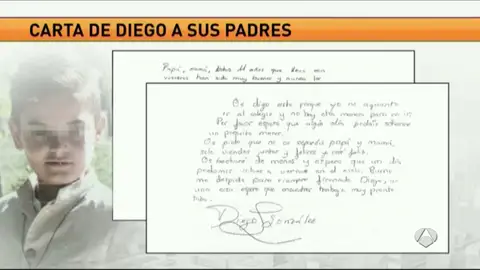 CARTA DE DIEGO A SUS PADRES
Papá, mamá, estos 11 años que llevo con
vosotros han sido muy buenos y nunca los
Os digo esto porque yo no aguanto
ir al colegio y no hay otra manera para no ir.
Por favor espero que algún día podáis odiarme
un poquito menos.
Os pido que no os separéis papá y mamá,
solo viéndoos juntos y felices yo seré feliz.
Os echaré de menos y espero que un día
podamos volver a vernos en el cielo. Bueno
me despido para siempre. Firmado Diego, a
una cosa espero que encuentres trabajo muy pronto
Tata.
Diego González